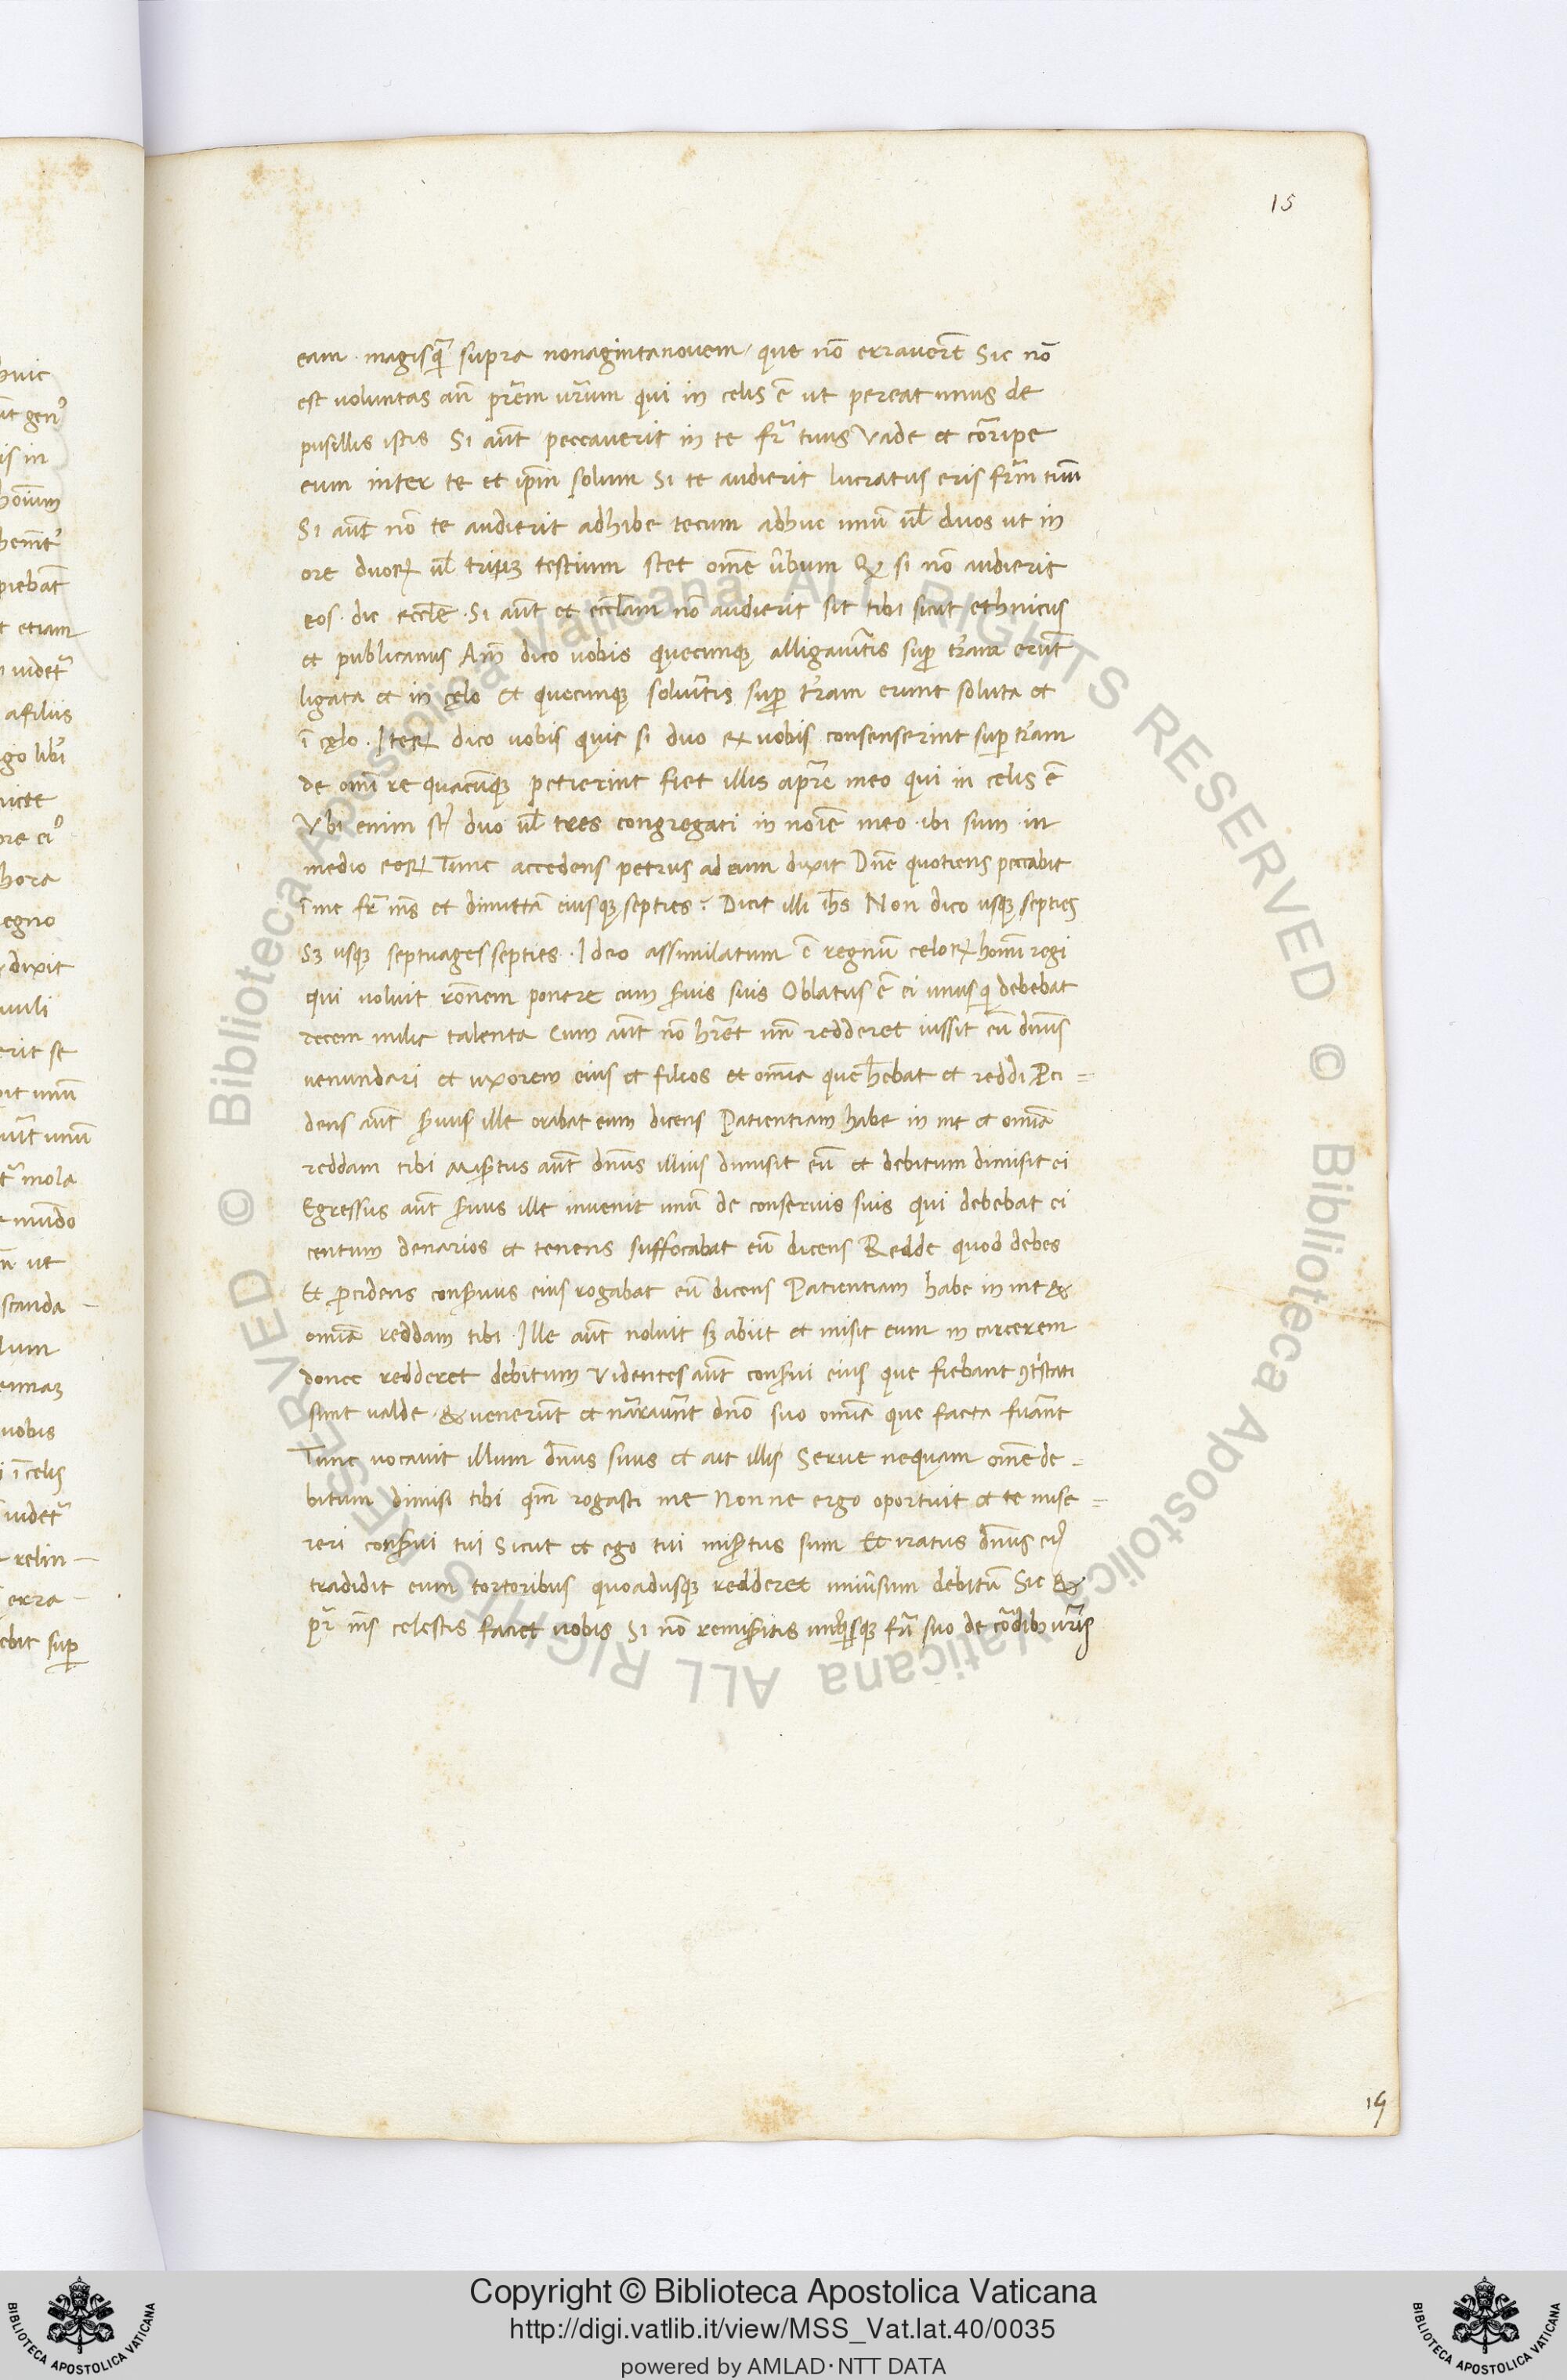 15
eam · magisq̃ supra nonagintanouem · que nõ errauer̃t Sic nõ
est voluntas añ prẽm vrũm qui in celis ẽ ut pereat unus de
pusillis istis Si aũt peccauerit in te fr̃ tuus Vade et corripe
eum inter te et ip̃m solum Si te audierit lucratus eris fr̃m tuũ
Si aũt nõ te audierit adhibe tecum adhuc unũ ul̃ duos ut in
ore duoꝝ ul̃ triuꝫ testium stet om̃e ũbum Qꝫ si nõ audierit
eos · dic eccl̃e · Si aũt et eccl̃iam nõ audierit sit tibi sicut ethnicus
et publicanus Am̃ dico uobis quecunqꝫ alligauĩtis sup̃ tr̃am erũt
ligata et in cęlo et quecunqꝫ soluĩtis sup̃ tr̃am erunt soluta et
ĩ cęlo · Iteꝝ dico uobis quic si duo ex uobis consenserint sup tr̃am
de om̃i re quacũqꝫ petierint fiet illis apr̃e meo qui in celis ẽ
Vbi enim st̃ duo ul̃ tres congregati in noĩe meo · ibi sum in
medio eoꝝ Tunc accedens petrus ad eum dixit Dñe quotiens peccabit
ĩ me fr̃ ms̃ et dimittã ei usqꝫ septies ? Dicit illi ih̃s Non dico usqꝫ septies
Sꝫ usqꝫ septuages septies · Ideo assimilatum ẽ regnũ celoꝝ homĩ regi
qui uoluit rõnem ponere cum s̃uis suis Oblatus ẽ ei unus q̃ debebat
decem milic talenta Cum aũt nõ hr̃et uñ redderet iussit eũ dñus
uenundari et uxorem eius et filios et om̃ia que h̃ebat et reddi Pci =
dens aũt s̃uus ille orabat eum dicens Patientiam habe in me et om̃ia
reddam tibi Mis̃tus aũt dñus illius dimisit eũ et debitum dimisit ei
Egressus aũt s̃uus ille inuenit unũ de conseruis suis qui debebat ei
centum denarios et tenens suffocabat eũ dicens Redde quod debes
Et ꝓcidens cons̃uus eius rogabat eũ dicens Patientiam habe in me &
om̃ia reddam tibi · Ille aũt noluit sꝫ abiit et misit eum in carcerem
donec redderet debitum Videntes aũt cons̃ui eius que fiebant ꝯtristati
sunt ualde · & uenerũt et narrauer̃t dño suo om̃ia que facta fuer̃ant
Tunc uocauit illum dñus suus et ait illi Serue nequam om̃e de =
bitum dimisi tibi qm̃ rogasti me Nonne ergo oportuit et te mise =
reri cons̃ui tui Sicut et ego tui mis̃tus sum Et iratus dñus ei⁹
tradidit eum tortoribus quoadusqꝫ redderet uniũsum debitũ Sic &
pr̃ ms̃ celestis faciet uobis Si nõ remis̃itis unusquisqꝫ fr̃i suo de cordibꝫ ur̃is
19
huic
is in
hoĩum
piebat̃
t etiam
afiliis
go libĩ
hora
egno
dixit
uuli
erit se
it unũ
uñt unũ
mola
mũdo
ut
scanda –
lum
uobis
ĩ celis
uidet̃
relin –
erra –
ebit sup̃
Biblioteca Apostolica Vaticana ALL RIGHTS RESERVED © Biblioteca Apostolica Vaticana ALL RIGHTS RESERVED ©
Copyright © Biblioteca Apostolica Vaticana
http://digi.vatlib.it/view/MSS_Vat.lat.40/0035
powered by AMLAD · NTT DATA
BIBLIOTECA APOSTOLICA VATICANA
BIBLIOTECA APOSTOLICA VATICANA